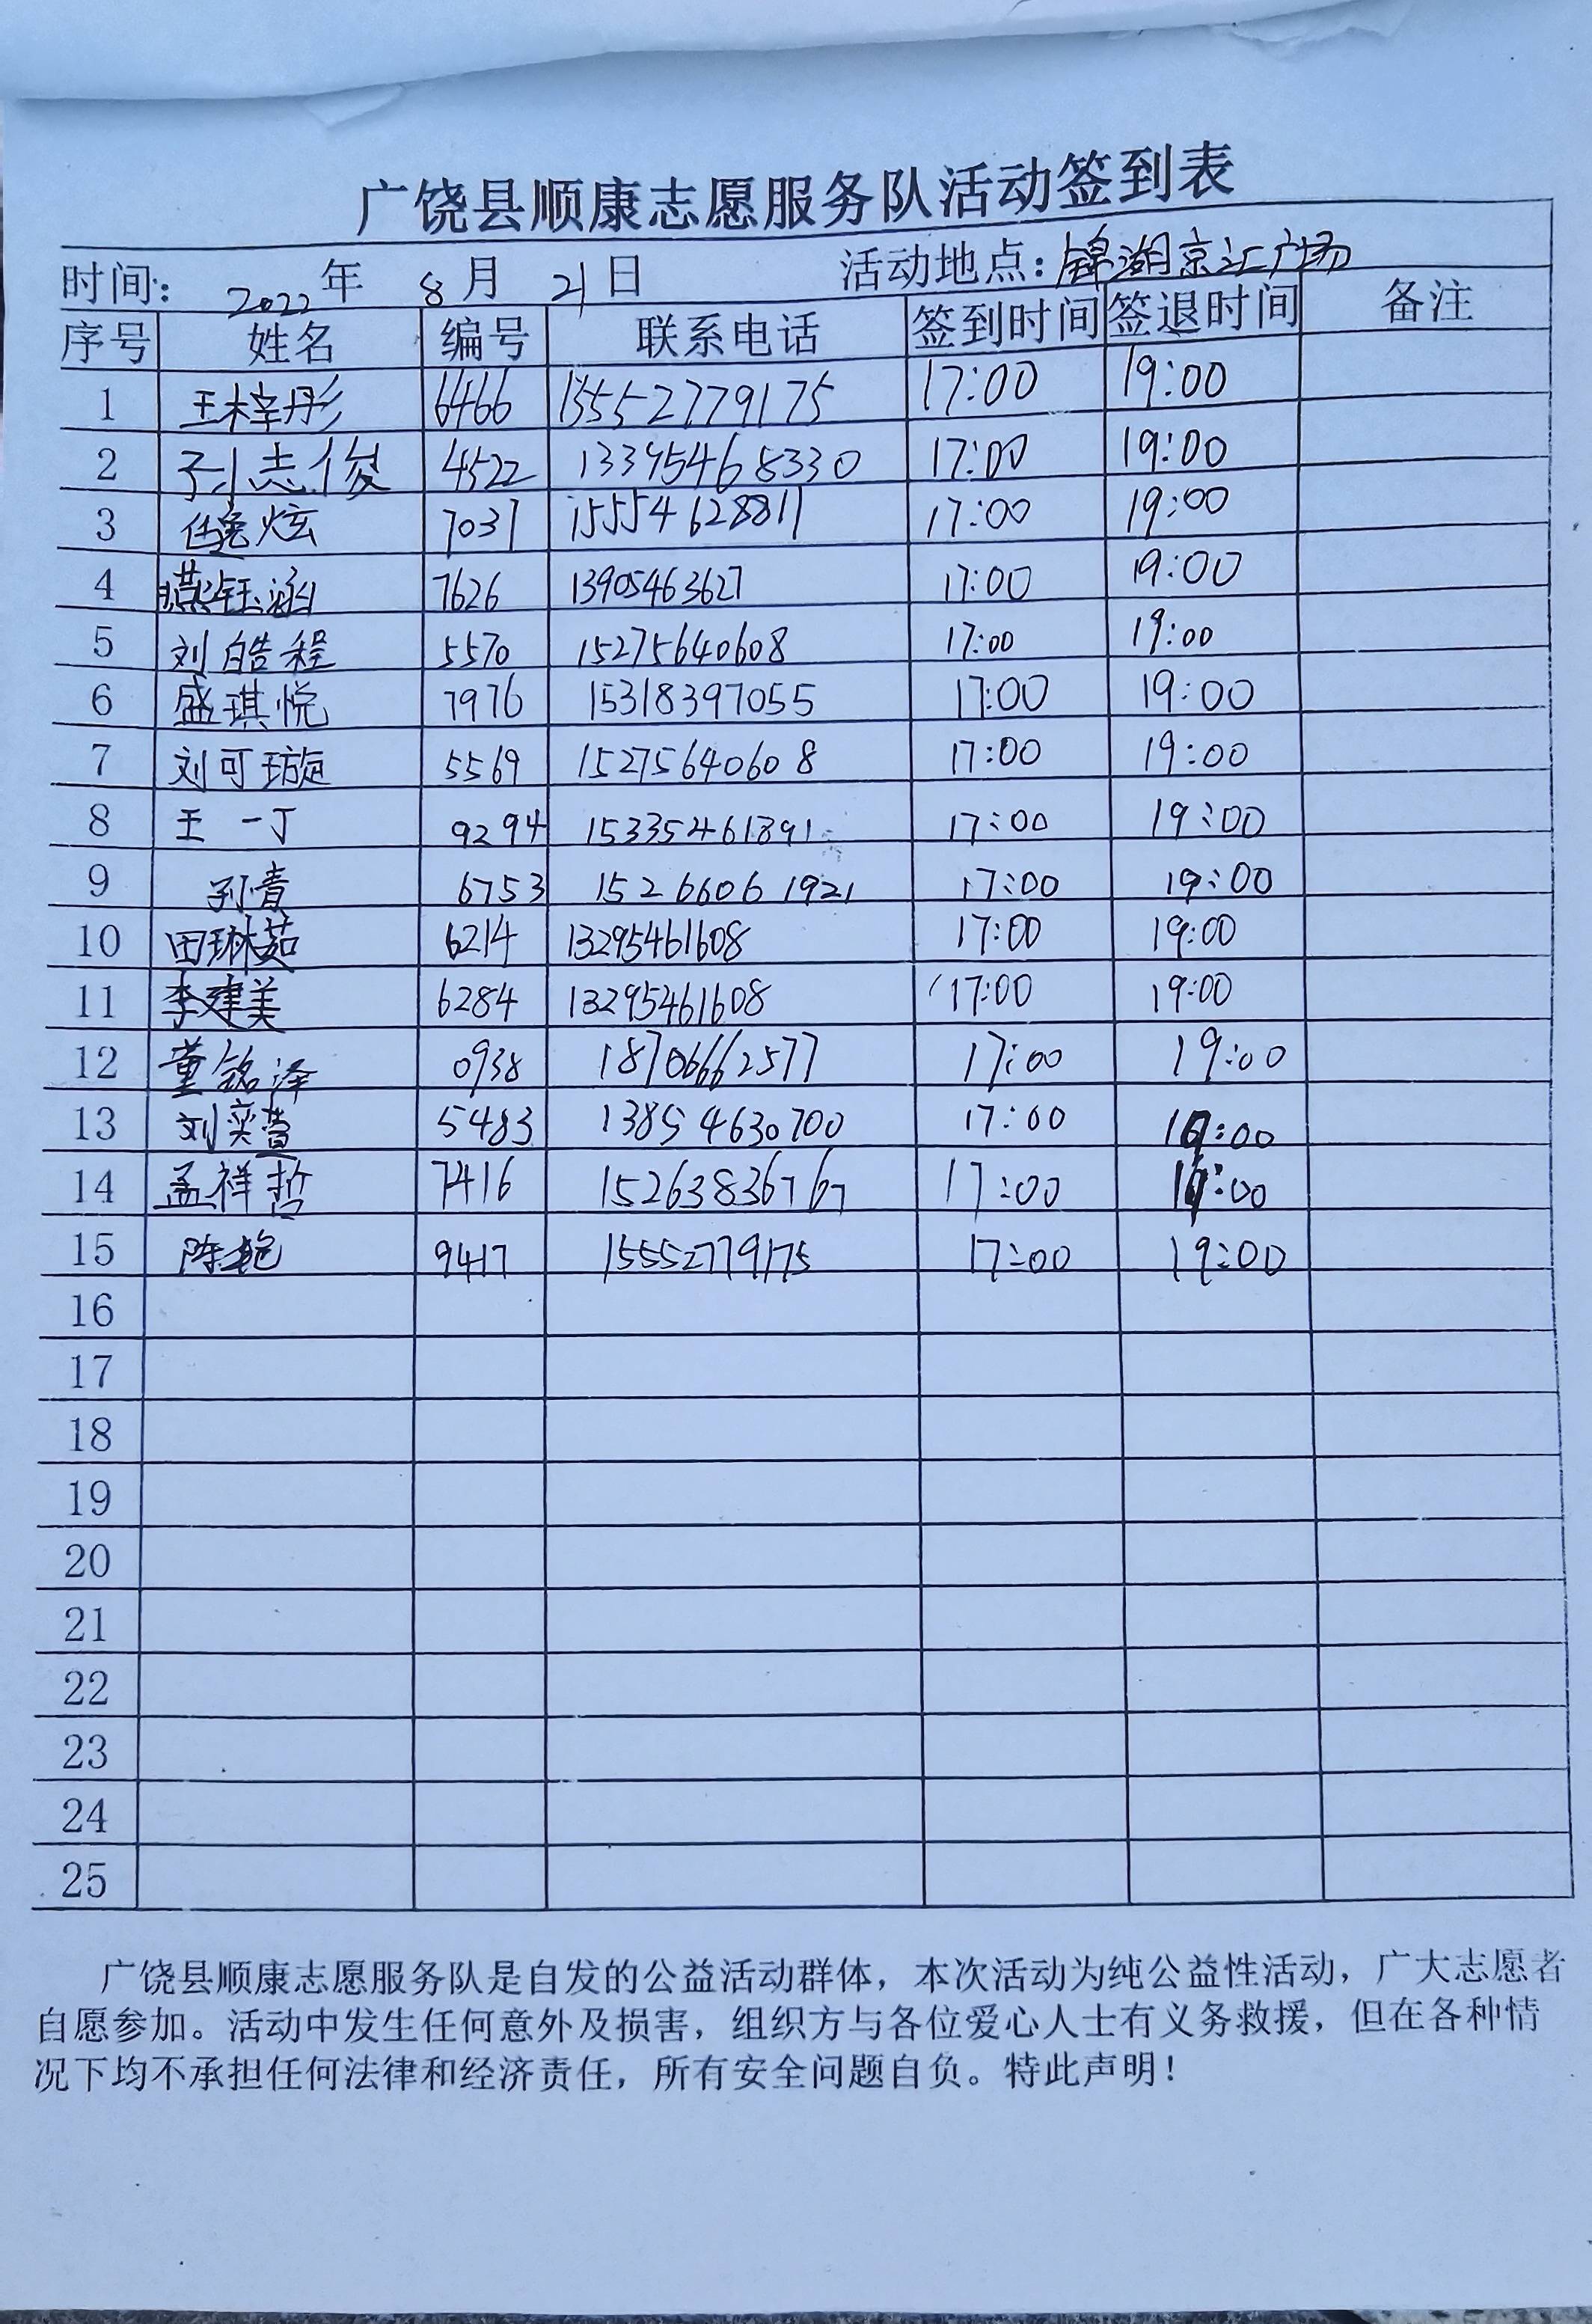 广饶县顺康志愿服务队活动签到表
时间： 2022 年 8 月 21 日 活动地点：锦湖京汇广场
序号 姓名 编号 联系电话 签到时间 签退时间 备注
1 王梓彤 6466 15552779175 17:00 19:00
2 孙志俊 4522 13395468330 17:00 19:00
3 炫 7037 15554628811 17:00 19:00
4 钰涵 7626 13905463627 17:00 19:00
5 刘皓程 5570 15275640608 17:00 19:00
6 盛琪悦 7976 15318397055 17:00 19:00
7 刘可璇 5569 15275640608 17:00 19:00
8 王一丁 9294 15335461891 17:00 19:00
9 孙青 6753 15266061921 17:00 19:00
10 田琳茹 6214 13295461608 17:00 19:00
11 李建美 6284 13295461608 17:00 19:00
12 董铭泽 0938 18706662577 17:00 19:00
13 刘奕萱 5483 13854630700 17:00 19:00
14 孟祥哲 7416 15263836767 17:00 19:00
15 陈艳 9417 15552779175 17:00 19:00
16
17
18
19
20
21
22
23
24
25
广饶县顺康志愿服务队是自发的公益活动群体，本次活动为纯公益性活动，广大志愿者
自愿参加。活动中发生任何意外及损害，组织方与各位爱心人士有义务救援，但在各种情
况下均不承担任何法律和经济责任，所有安全问题自负。特此声明！